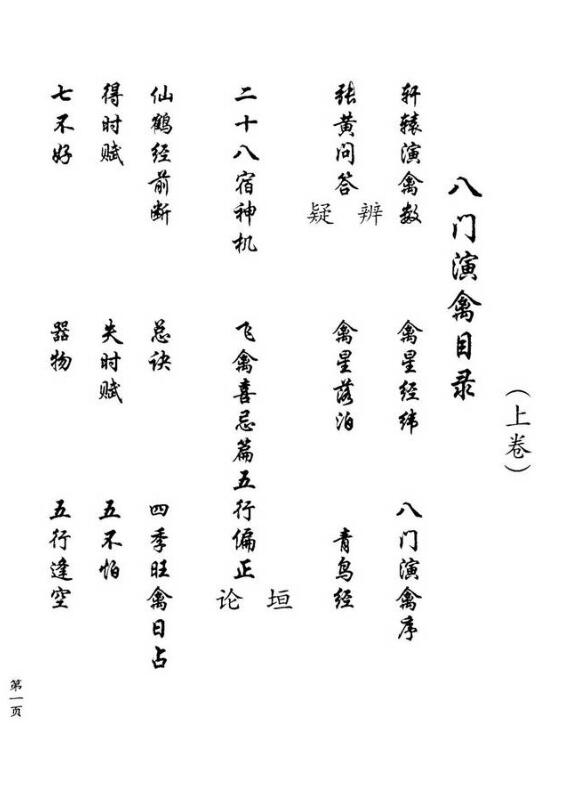 （上卷）
八门演禽目录
轩辕演禽数 禽星经纬 八门演禽序
张黄问答 辨疑 禽星落泊 青鸟经
二十八宿神机 飞禽喜忌篇 五行偏正 垣论
仙鹤经前断 总诀 四季旺禽日占
得时赋 失时赋 五不怕
七不好 器物 五行逢空
第一页